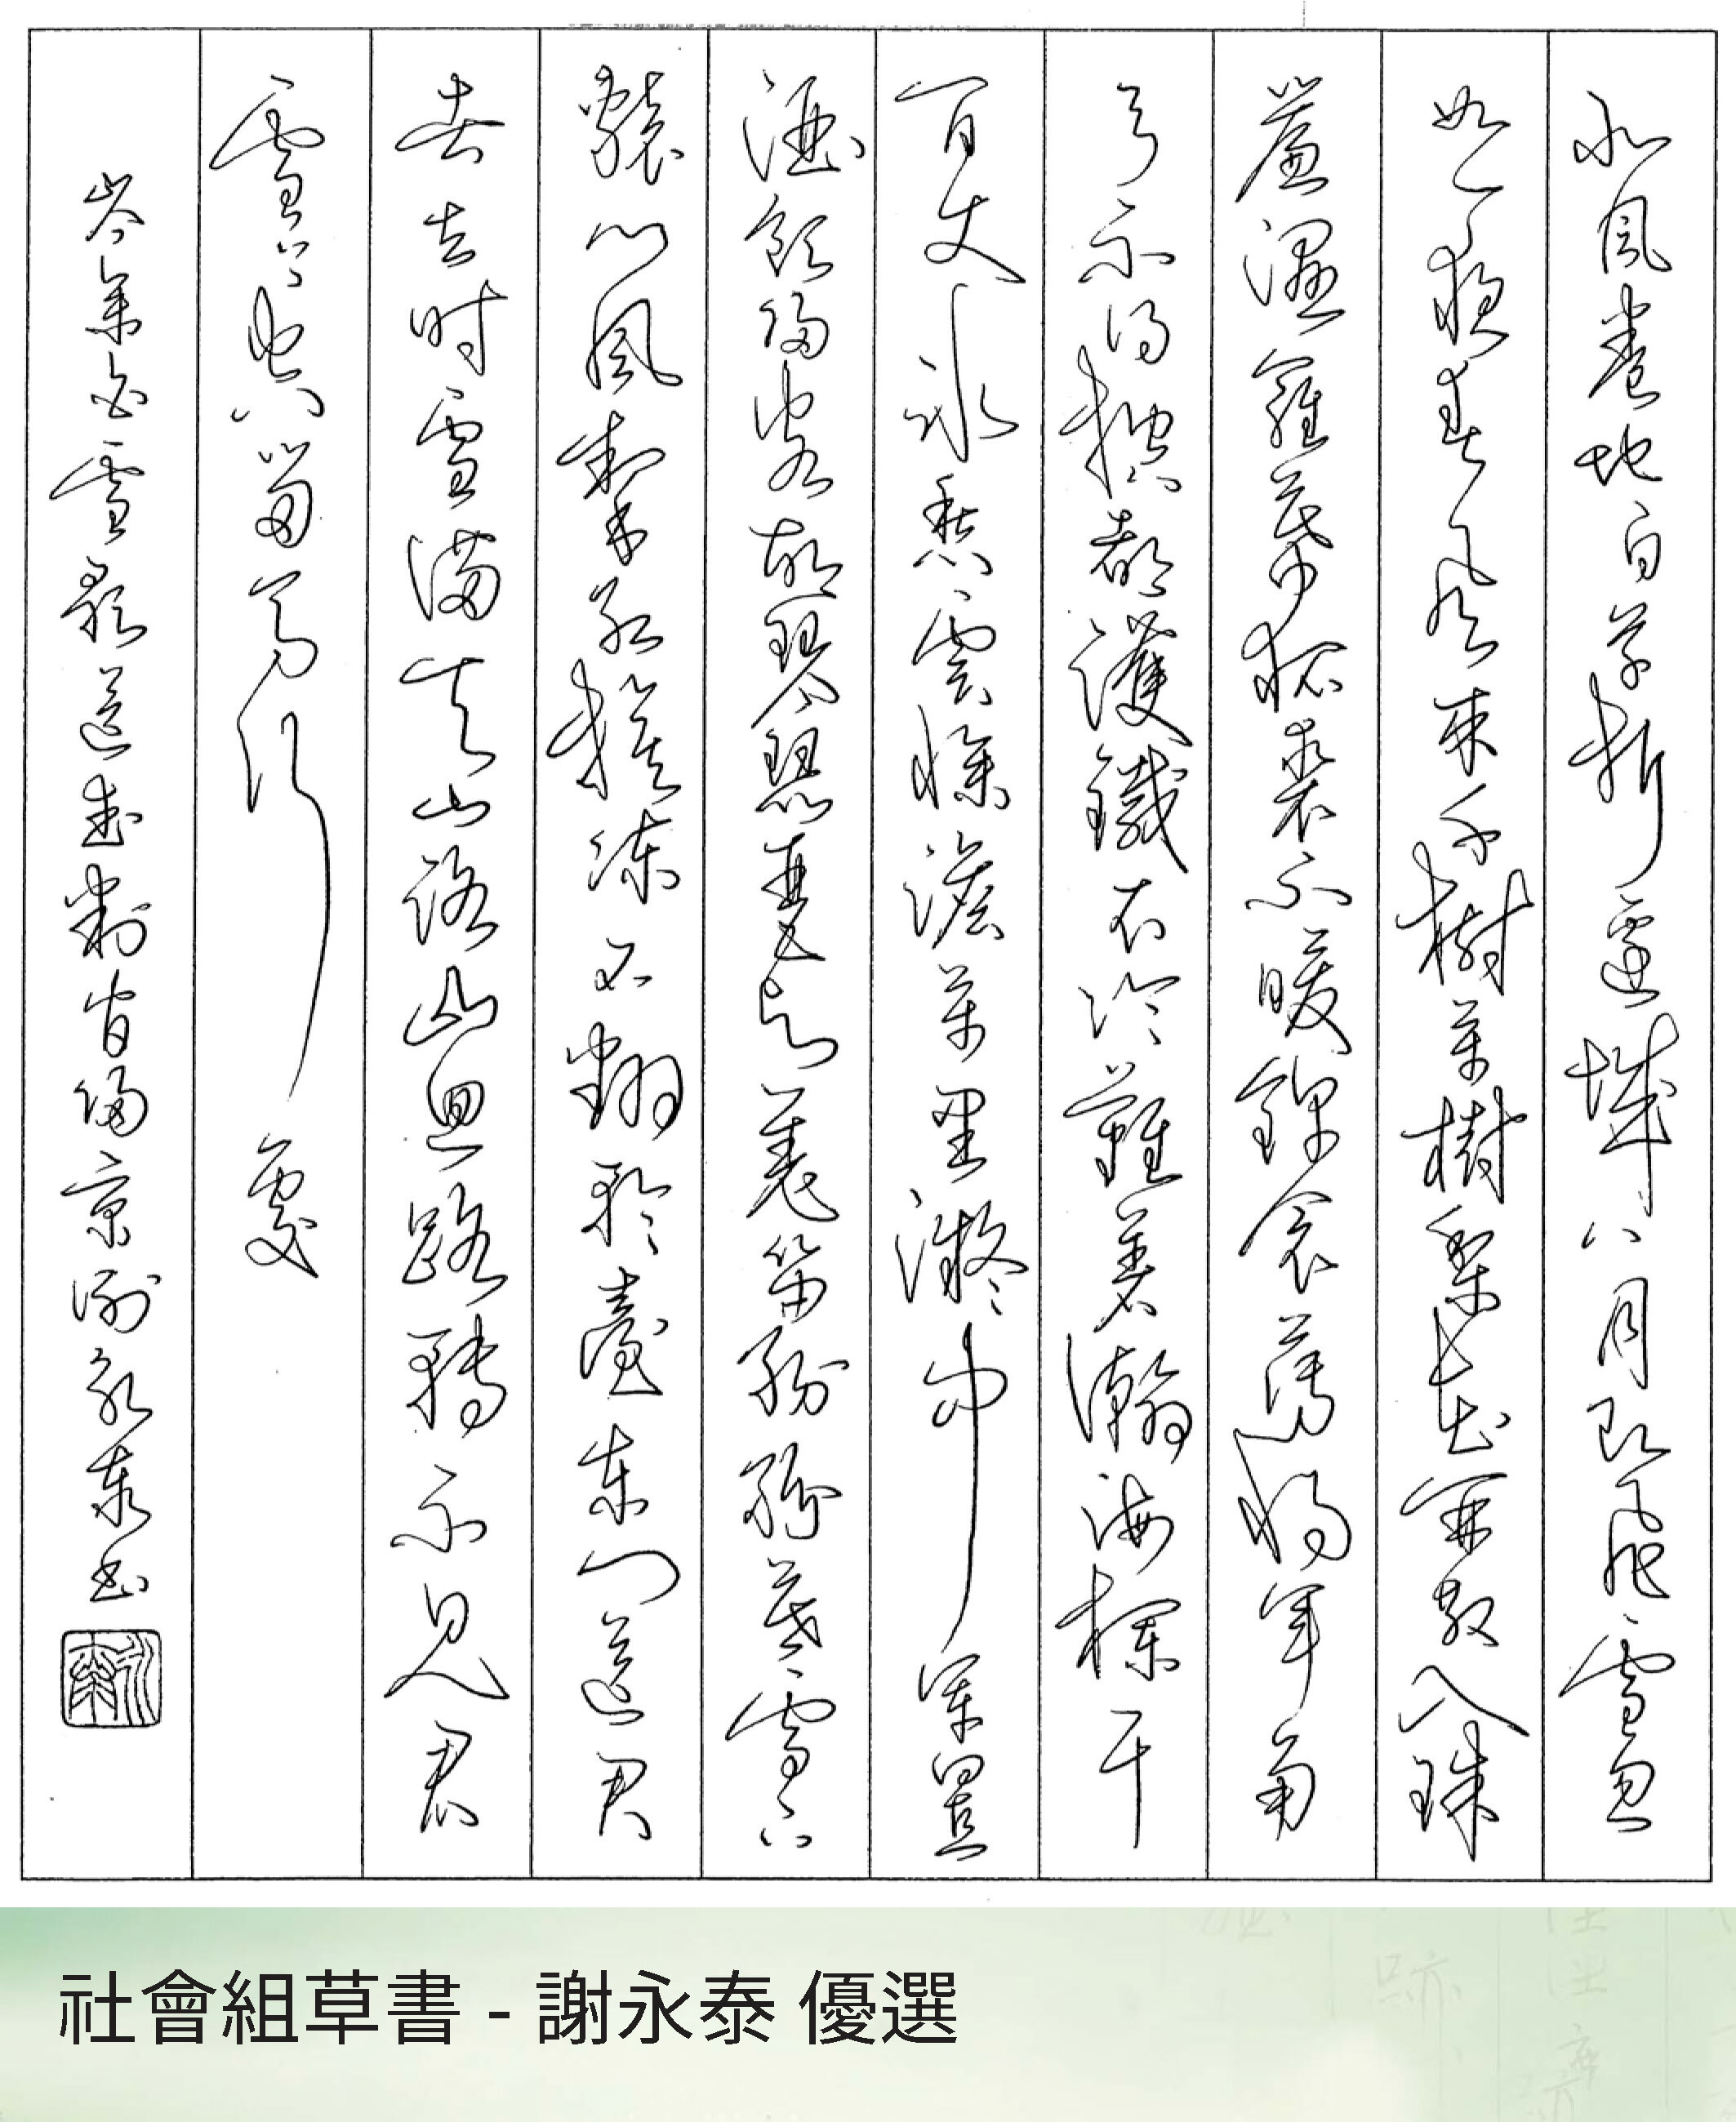 北風卷地白草折邊城八月即飛雪忽
如一夜春風來千樹萬樹梨花開散入珠
簾濕羅幕狐裘不暖錦衾薄將軍角
弓不得控都護鐵衣冷難著瀚海欄干
百丈冰愁雲慘澹萬里凝中軍置
酒飲歸客胡琴琵琶與羌笛紛紛暮雪下
轅門風掣紅旗凍不翻輪臺東門送君
去去時雪滿天山路山迴路轉不見君
雪上空留馬行處
岑參白雪歌送武判官歸京 謝永泰書
永泰
社會組草書 - 謝永泰 優選